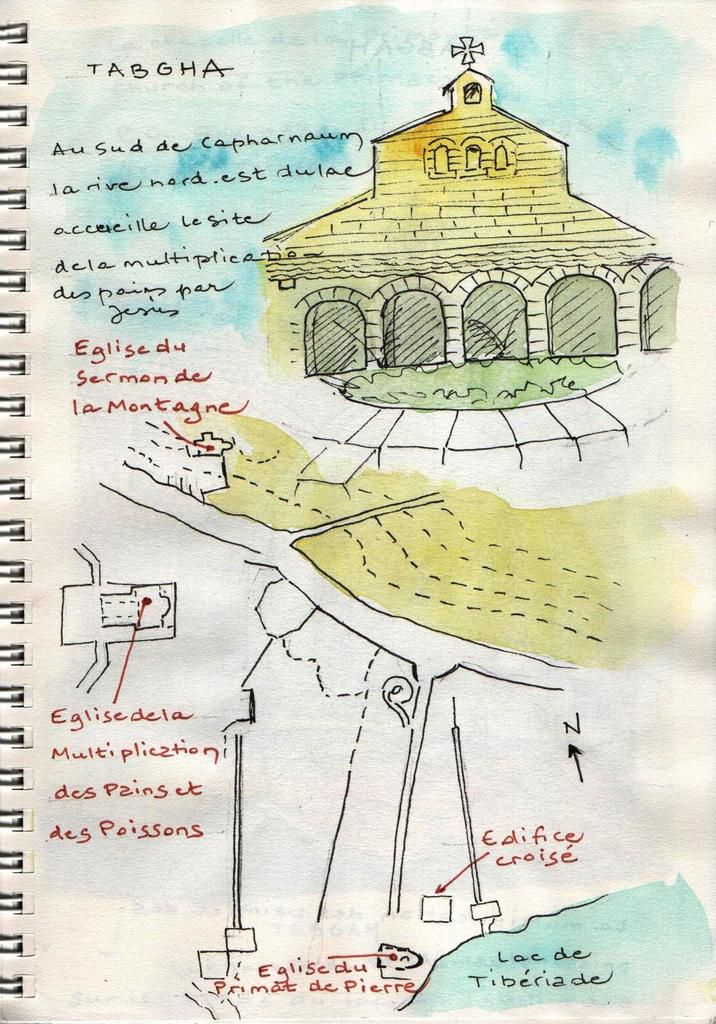 TABGHA
Au sud de Capharnaum
la rive nord-est du lac
accueille le site
de la multiplicatio-
des pains par
Jesùs
Eglise du
Sermon de
la Montagne
Eglise de la
Multiplication
des Pains et
des Poissons
N
Edifice
croisé
Eglise du
Primat de Pierre
Lac de
Tibériade